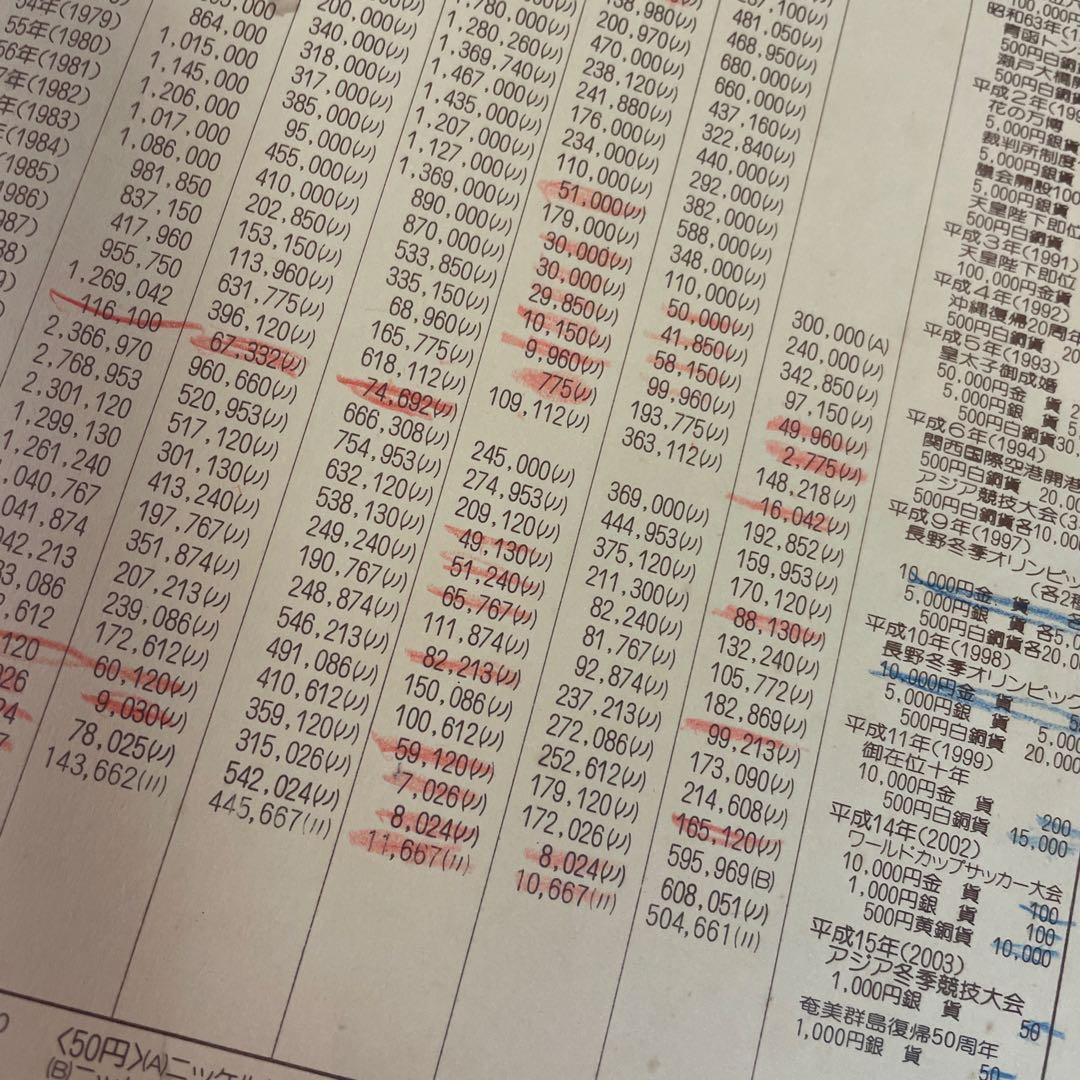 54年(1979)
55年(1980)
56年(1981)
7年(1982)
年(1983)
年(1984)
(1985)
1986)
987)
38)
864,000
1,015,000
1,145,000
1,206,000
1,017,000
1,086,000
981,850
837,150
417,960
955,750
1,269,042
116,100
2,366,970
2,768,953
2,301,120
1,299,130
1,261,240
,040,767
041,874
042,213
33,086
,612
120
026
24
7
200,000(〃)
340,000(〃)
318,000(〃)
317,000(〃)
385,000(〃)
95,000(〃)
455,000(〃)
410,000(〃)
202,850(〃)
153,150(〃)
113,960(〃)
631,775(〃)
396,120(〃)
67,332(〃)
960,660(〃)
520,953(〃)
517,120(〃)
301,130(〃)
413,240(〃)
197,767(〃)
351,874(〃)
207,213(〃)
239,086(〃)
172,612(〃)
60,120(〃)
9,030(〃)
78,025(〃)
143,662(〃)
1,780,000(〃)
1,280,260(〃)
1,369,740(〃)
1,467,000(〃)
1,435,000(〃)
1,207,000(〃)
1,127,000(〃)
1,369,000(〃)
890,000(〃)
870,000(〃)
533,850(〃)
335,150(〃)
68,960(〃)
165,775(〃)
618,112(〃)
74,692(〃)
666,308(〃)
754,953(〃)
632,120(〃)
538,130(〃)
249,240(〃)
190,767(〃)
248,874(〃)
546,213(〃)
491,086(〃)
410,612(〃)
359,120(〃)
315,026(〃)
542,024(〃)
445,667(〃)
138,980(〃)
200,970(〃)
470,000(〃)
238,120(〃)
241,880(〃)
176,000(〃)
234,000(〃)
110,000(〃)
51,000(〃)
179,000(〃)
30,000(〃)
30,000(〃)
29,850(〃)
10,150(〃)
9,960(〃)
775(〃)
109,112(〃)
245,000(〃)
274,953(〃)
209,120(〃)
49,130(〃)
51,240(〃)
65,767(〃)
111,874(〃)
82,213(〃)
150,086(〃)
100,612(〃)
59,120(〃)
7,026(〃)
8,024(〃)
11,667(〃)
481,050(〃)
468,950(〃)
680,000(〃)
660,000(〃)
437,160(〃)
322,840(〃)
440,000(〃)
292,000(〃)
382,000(〃)
588,000(〃)
348,000(〃)
110,000(〃)
50,000(〃)
41,850(〃)
58,150(〃)
99,960(〃)
193,775(〃)
363,112(〃)
369,000(〃)
444,953(〃)
375,120(〃)
211,300(〃)
82,240(〃)
81,767(〃)
92,874(〃)
237,213(〃)
272,086(〃)
252,612(〃)
179,120(〃)
172,026(〃)
8,024(〃)
10,667(〃)
300,000(A)
240,000(〃)
342,850(〃)
97,150(〃)
49,960(〃)
2,775(〃)
148,218(〃)
16,042(〃)
192,852(〃)
159,953(〃)
170,120(〃)
88,130(〃)
132,240(〃)
105,772(〃)
182,869(〃)
99,213(〃)
173,090(〃)
214,608(〃)
165,120(〃)
595,969(B)
608,051(〃)
504,661(〃)
100,000円
昭和63年(1
青函トン
500円白銅
瀬戸大橋
500円白銅貨
平成2年(199
花の万博
5,000円銀貨
裁判所制度
5,000円銀
議会開設100
5,000円銀貨
天皇陛下即位
500円白銅貨
平成3年(1991)
天皇陛下即位
100,000円金貨
平成4年(1992)
沖縄復帰20周年
500円白銅貨 20
平成5年(1993)
皇太子御成婚
50,000円金 貨 2
5,000円銀 貨 5
500円白銅貨30,
平成6年(1994)
関西国際空港開港
500円白銅貨 20,00
アジア競技大会(3
500円白銅貨各10,00
平成9年(1997)
長野冬季オリンピック
(各2種
10,000円金 貨 各
5,000円銀 貨 各5,0
500円白銅貨各20,00
平成10年(1998)
長野冬季オリンピック
10,000円金 貨 5
5,000円銀 貨 5,000
500円白銅貨 20,000
平成11年(1999)
御在位十年
10,000円金 貨 200
500円白銅貨 15,000
平成14年(2002)
ワールドカップサッカー大会
10,000円金 貨 100
1,000円銀 貨 100
500円黄銅貨 10,000
平成15年(2003)
アジア冬季競技大会
1,000円銀 貨 50
奄美群島復帰50周年
1,000円銀 貨 50
〈50円〉(A)ニッケル
(B)ニッ